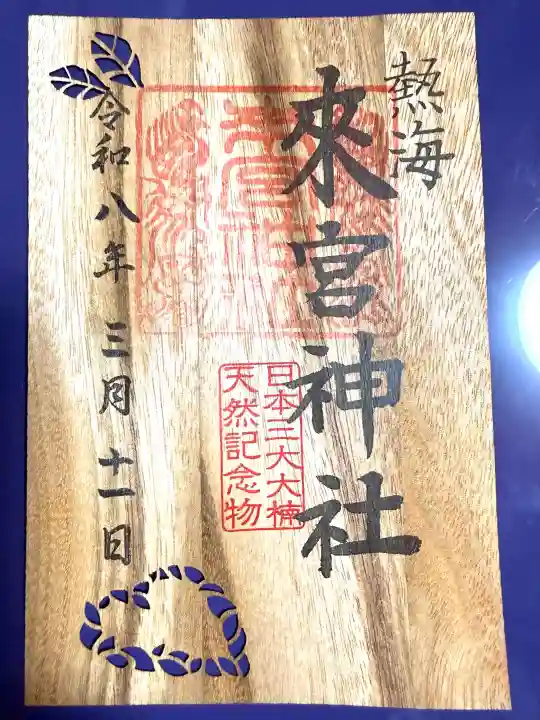 熱海
來宮神社
日本三大大楠
天然記念物
令和八年 三月 十一日